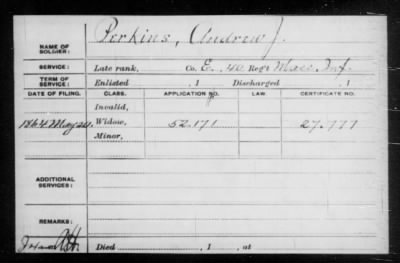 Perkins, Andrew J.
NAME OF SOLDIER:
SERVICE: Late rank, Co. E, 40 Reg't Mass Inf.
TERM OF SERVICE: Enlisted , 1 Discharged , 1
DATE OF FILING. CLASS. APPLICATION NO. LAW. CERTIFICATE NO.
Invalid,
1864 May 24. Widow, 52.171 27.777
Minor,
ADDITIONAL SERVICES:
REMARKS:
Died , 1 , at